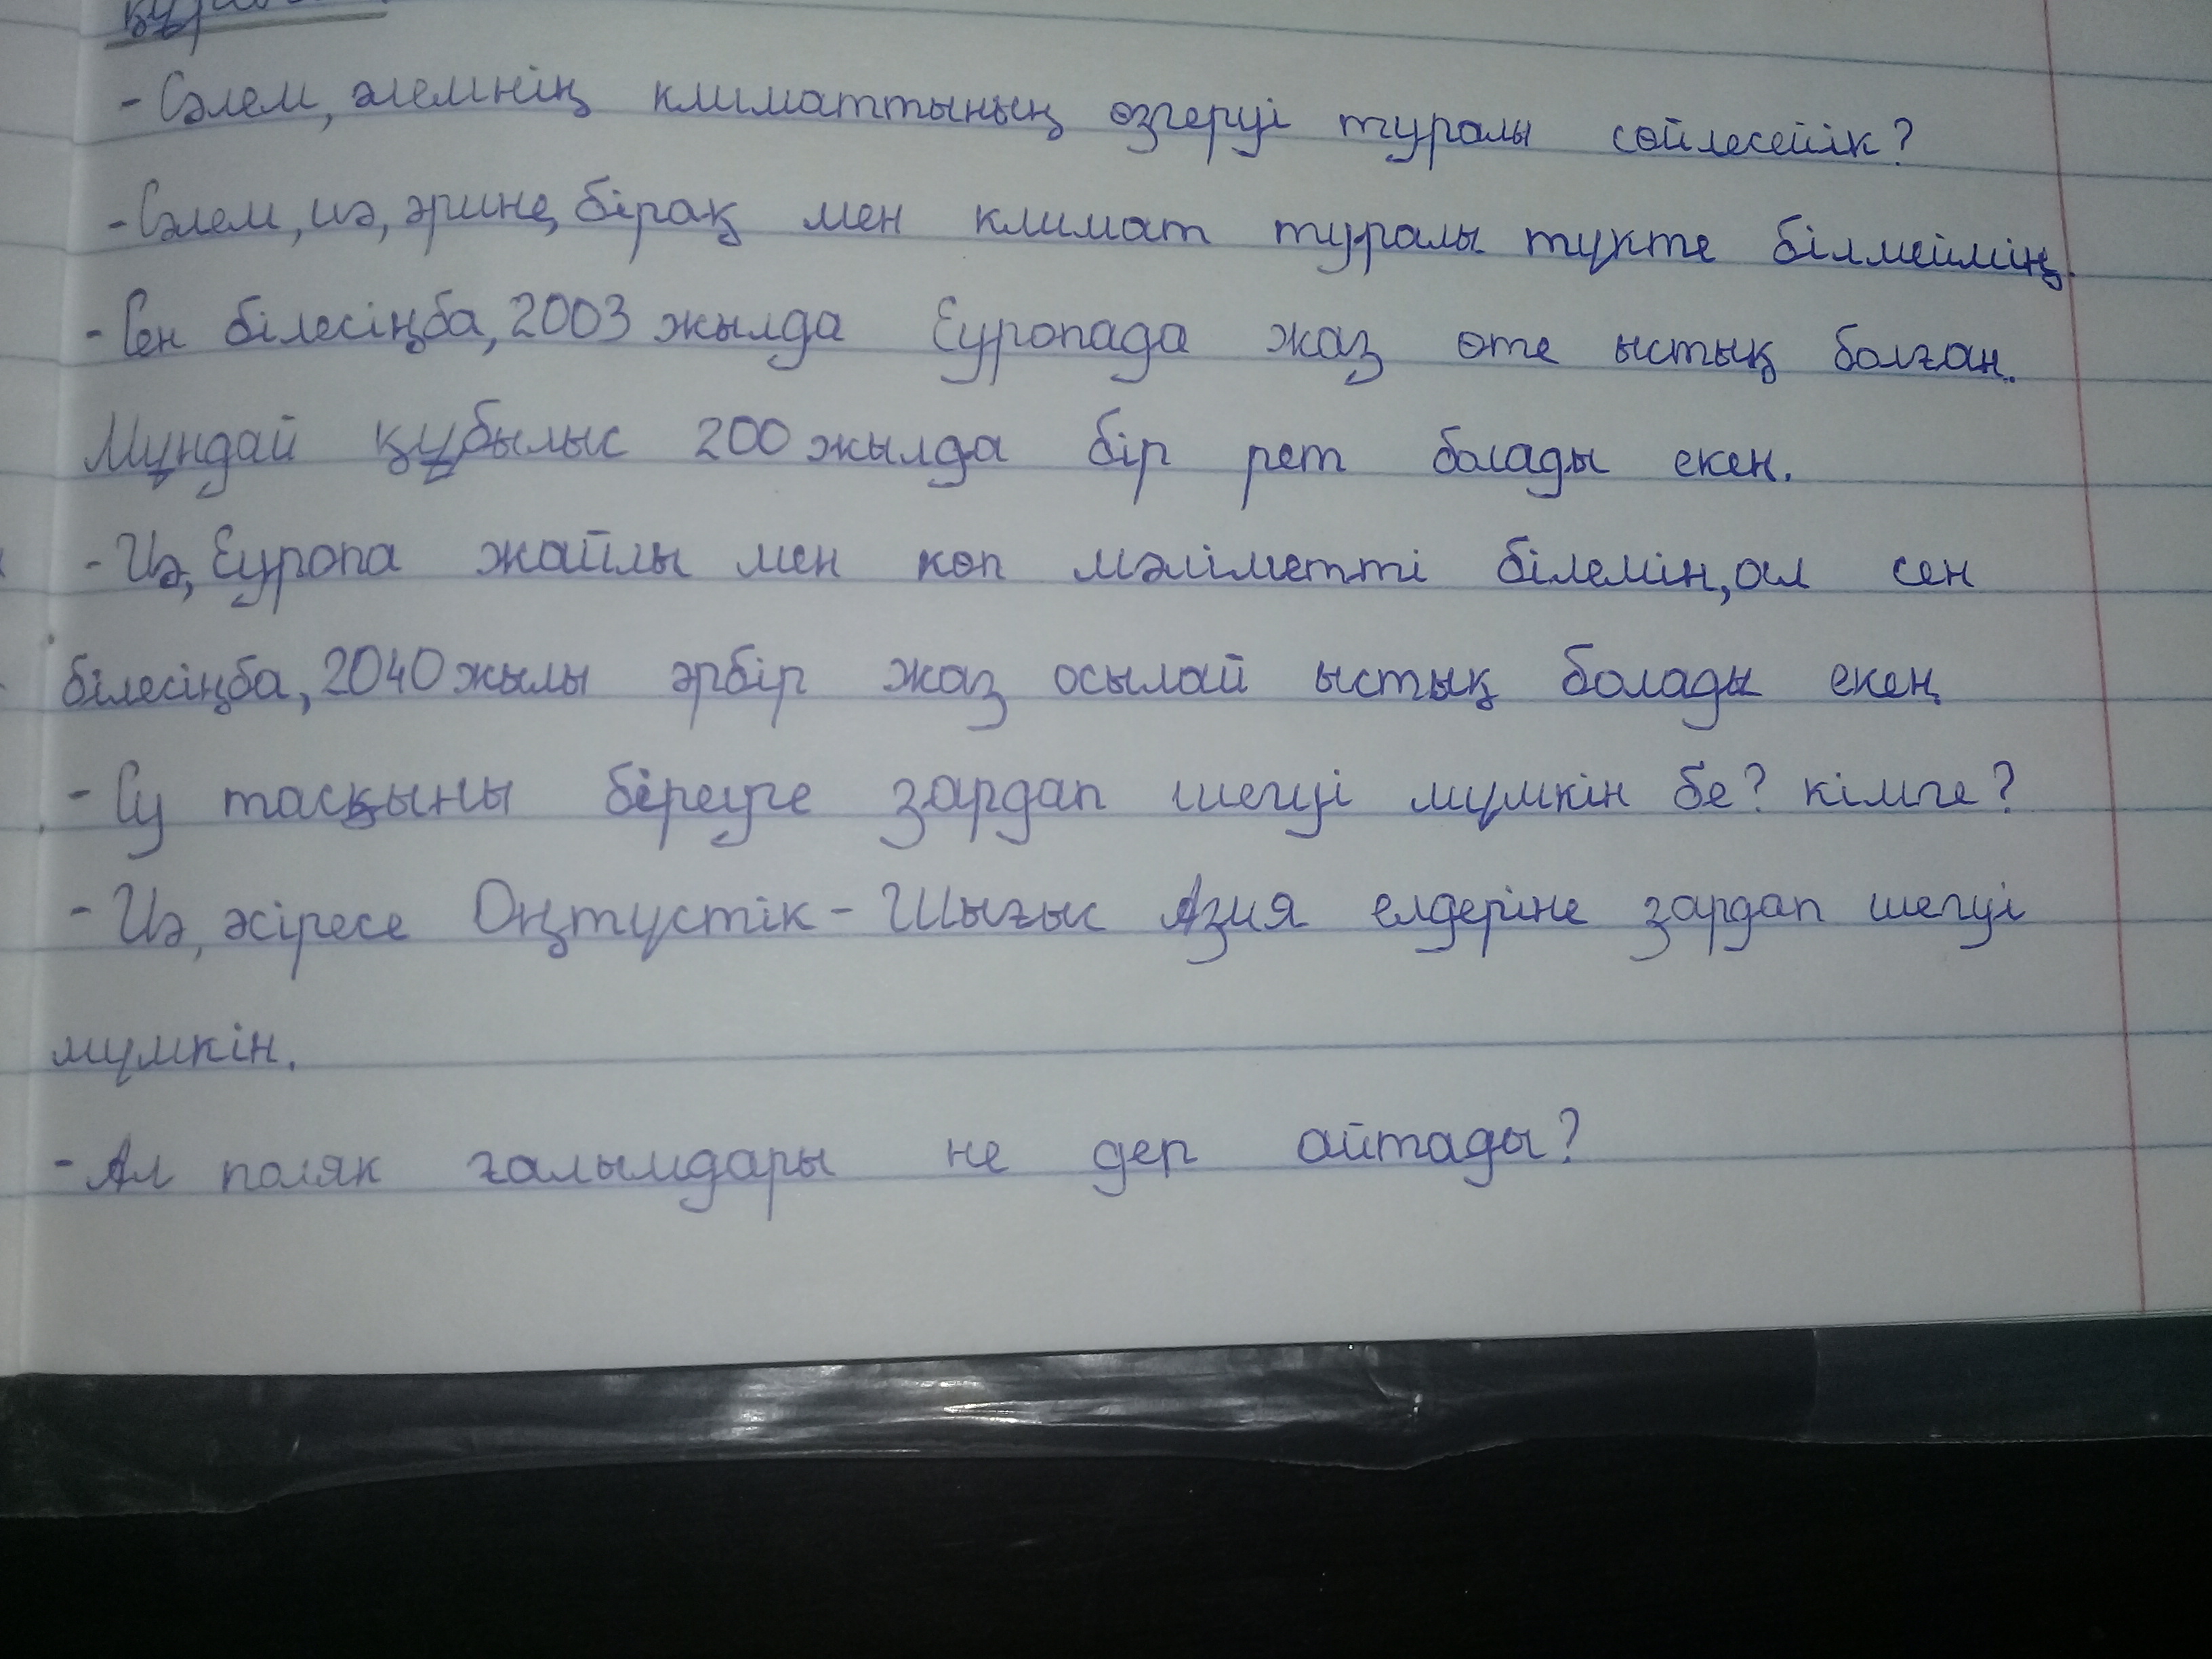 - Сәлем, әлемнің климаттының өзгеруі туралы сөйлесейік?
- Сәлем, иә, әрине, бірақ мен климат туралы түкте білмеймің.
- Сен білесіңба, 2003 жылда Еуропада жаз өте ыстық болған.
Мұндай құбылыс 200 жылда бір рет болады екен.
- Иә, Еуропа жайлы мен көп мәліметті білемін, ал сен
білесіңба, 2040 жылы әрбір жаз осылай ыстық болады екен
- Су тасқыны біреуге зардап шегуі мүмкін бе? кімге?
- Иә, әсіресе Оңтүстік - Шығыс Азия елдеріне зардап шегуі
мүмкін.
- Ал поляк ғалымдары не деп айтады?